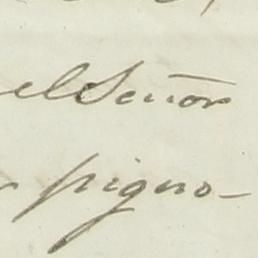 el Señor
pigno-